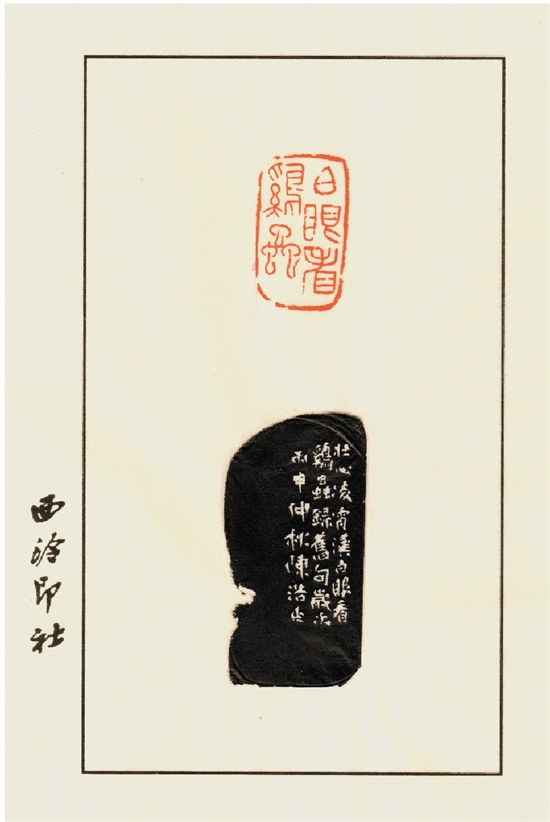 白眼看
鷄蟲
壯心凌霄漢白眼看
鷄蟲録舊句歲次
丙申仲秋陳浩
西泠印社